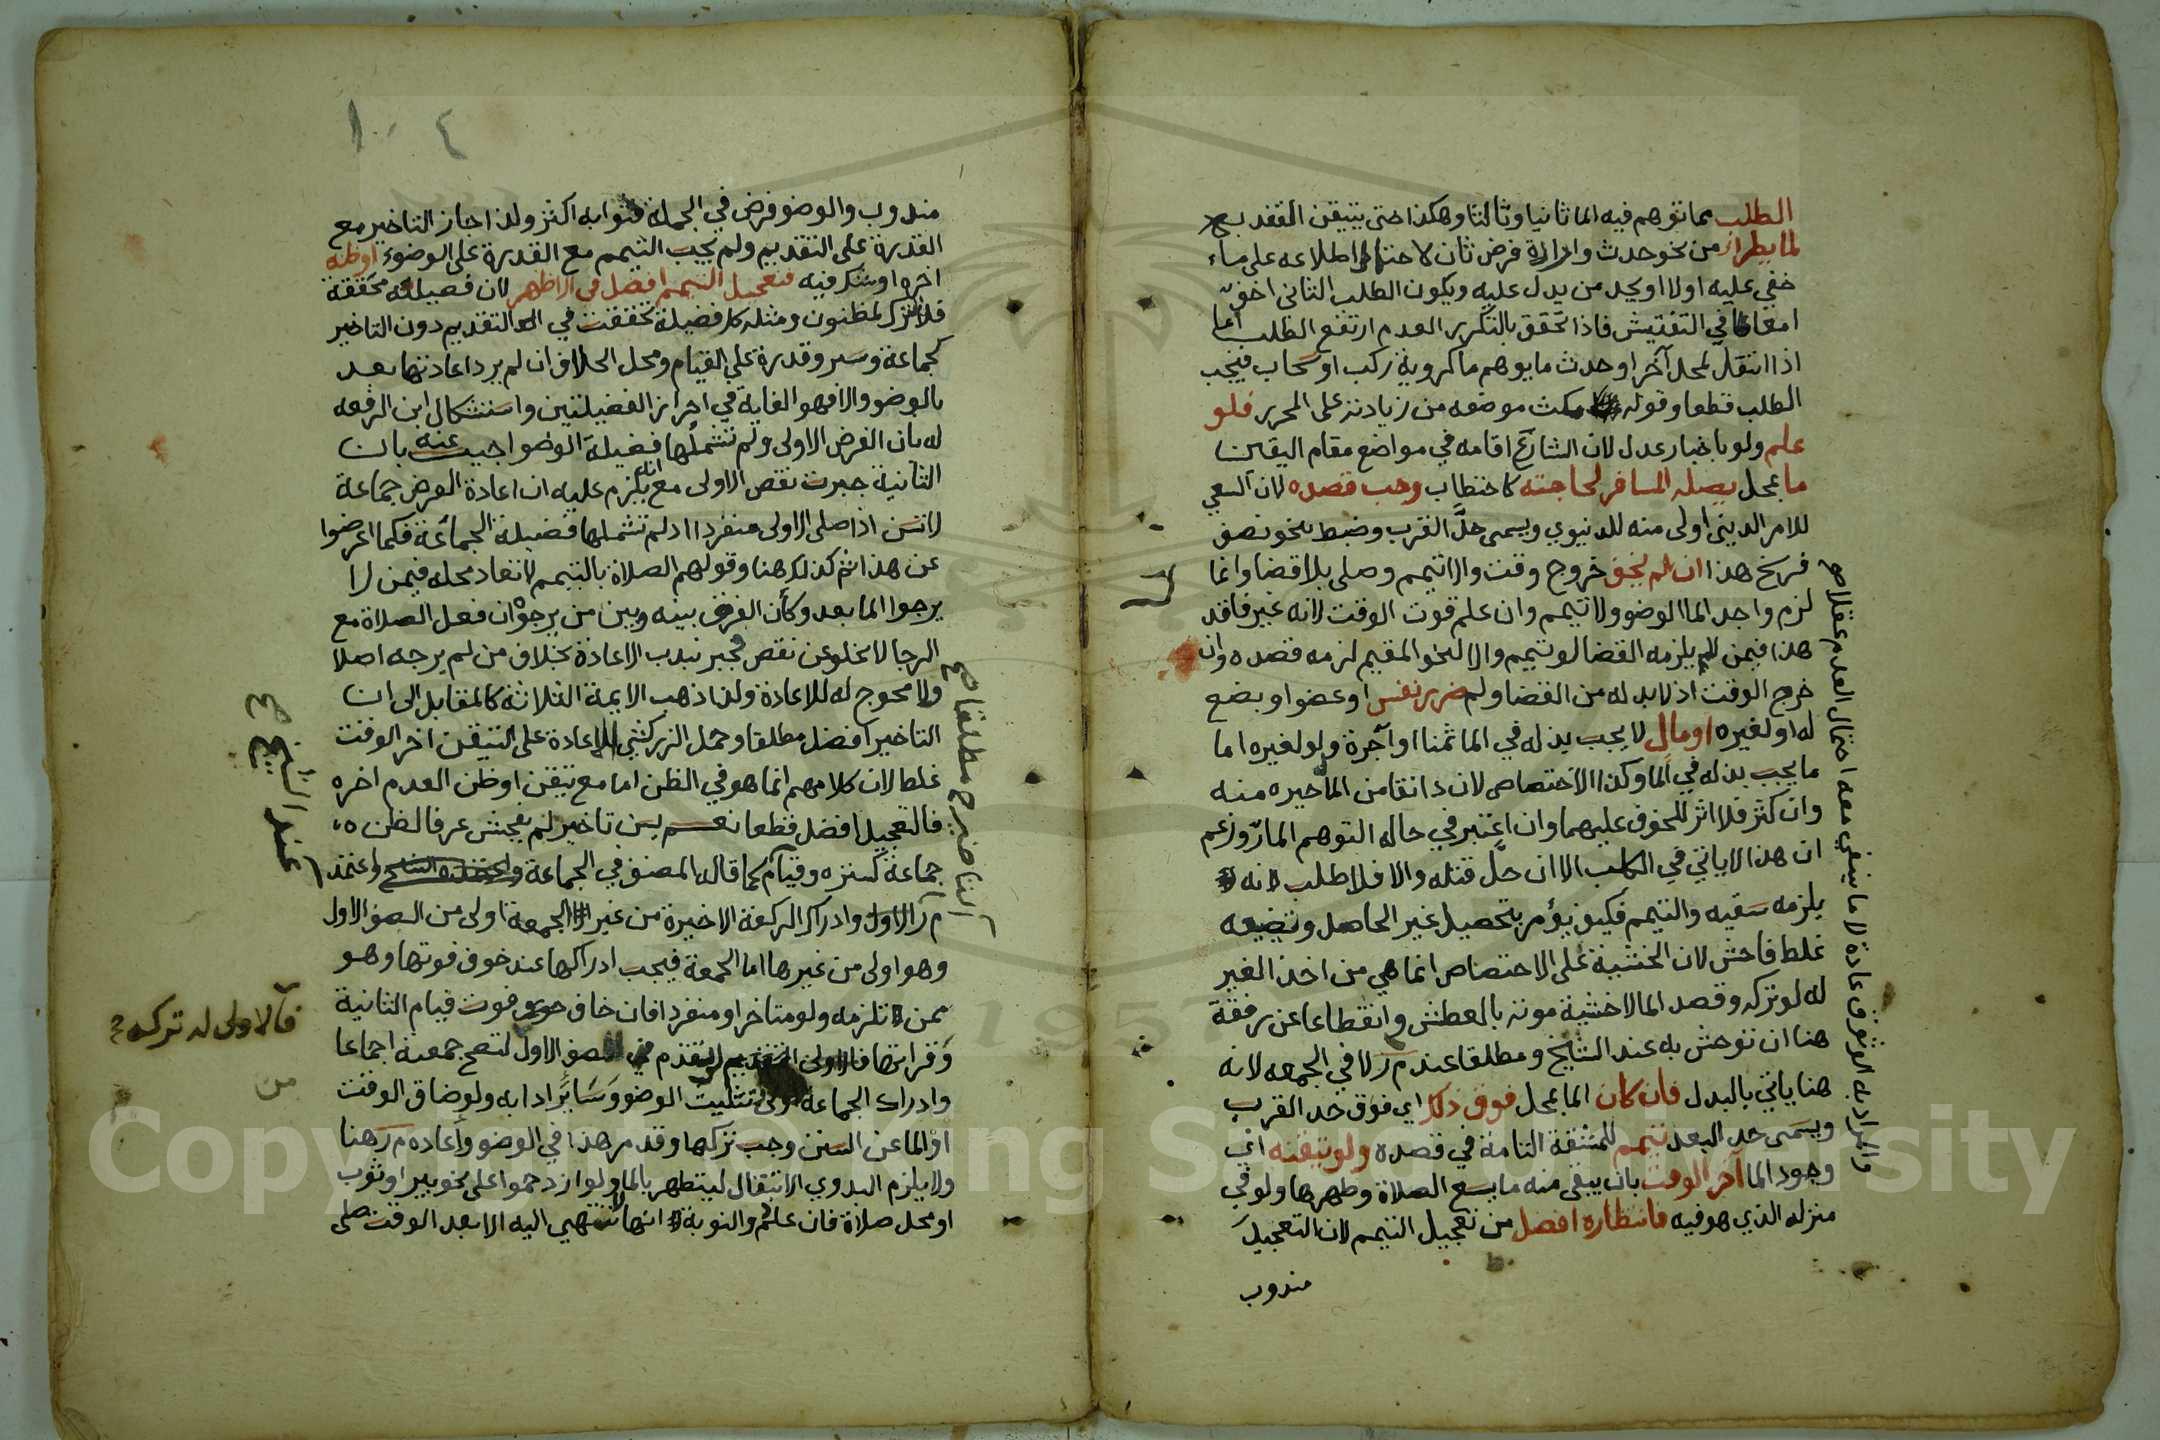 الطلب مما توهم فيه الما ثانيا وثالثا وهكذا حتى يتيقن الفقد
لما يطرا من نحو حدث وارادة فرض ثان لاحتمال اطلاعه على ماء
خفي عليه اولا او يجد من يدل عليه ويكون الطلب الثاني اخف
امعانا في التفتيش فاذا تحقق بالتكرر العدم ارتفع الطلب اما
اذا انتقل لمحل آخر او حدث ما يوهم ما كروية ركب او سحاب فيجب
الطلب قطعا وقوله مكث موضعه من زيادته على المحرر فلو
علم ولو باخبار عدل لان الشارع اقامه في مواضع مقام اليقين
ما بمحل يصله المسافر لحاجته كاحتطاب وجب قصده لان السعي
للامر الديني اولى منه للدنيوي ويسمى حد القرب وضبط بنحو نصف
فرسخ هذا ان لم يخف خروج وقت والا تيمم وصلى بلا قضا وانما
لزم واجد الما الوضو ولا تيمم وان علم فوت الوقت لانه غير فاقد
هذا فيمن لم يلزمه القضا لو تيمم والا لنحو المقيم لزمه قصده وان
خرج الوقت اذ لا بد له من القضا ولم ضرر نفس او عضو او بضع
له او لغيره او مال لا يجب بذله في الما ثمنا او آجرة ولو لغيره اما
ما يجب بذله في الما وكذا الاختصاص لان دانقا من المال خير منه
وان كثر فلا اثر للخوف عليهما وان اعتبر في حاله التوهم المار وزعم
ان هذا لا ياتي في الكلب الا ان حل قتله والا فلا طلب لانه
يلزمه سقيه والتيمم فكيف يؤمر بتحصيل غير الحاصل وتضييعه
غلط فاحش لان الخشية على الاختصاص انما هي من اخذ الغير
له لو تركه وقصد الما لا خشية موته بالعطش وانقطاعا عن رفقة
هنا ان توحش به عند الشايخ ومطلقا عند م ر لا في الجمعه لانه
هنا ياتي بالبدل فان كان الما بمحل فوق ذلك اي فوق حد القرب
ويسمى حد البعد تيمم للمشقة التامة في قصده ولو تيقنه اي
وجود الما آخر الوقت بان يبقى منه ما يسع الصلاة وطهرها ولو في
منزله الذي هو فيه فانتظاره افضل من تعجيل التيمم لان التعجيل
مندوب
والمراد به الغوث عادة لا ما ينفي معه احتمال العدم عقلا
١٠٤
مندوب والوضو فرض في الجملة فثوابه اكثر ولذا جاز التاخير مع
القدرة على التقديم ولم يجب التيمم مع القدرة على الوضوء او ظنه
اخره او شك فيه فتعجيل التيمم افضل في الاظهر لان فضيلته محققة
فلا تترك لمظنون ومثله كل فضيلة تحققت في التقديم دون التاخير
كجماعة وستر وقدرة على القيام ومحل الخلاف ان لم يرد اعادتها بعد
بالوضو والا فهو الغاية في احراز الفضيلتين واستشكال ابن الرفعه
له بان الفرض الاولى ولم تشملها فضيلة الوضوا جيب عنه بان
الثانية جبرت نقص الاولى مع انه يلزم عليه ان اعادة الفرض جماعة
لا تسن اذا صلى الاولى منفردا اذ لم تشملها فضيلة الجماعة فكما اعرضوا
عن هذا ثم كذلك هنا وقولهم الصلاة بالتيمم لا تعاد محله فيمن لا
يرجوا الما بعد وكأن الفرق بينه وبين من يرجوه ان فعل الصلاة مع
الرجا لا يخلو عن نقص فجبر بندب الاعادة بخلاف من لم يرجه اصلا
ولا محوج له للاعادة ولذا ذهب الايمة الثلاثة كالمقابل الى ان
التاخير افضل مطلقا وحمل الزركشي الاعادة على التيقن اخر الوقت
غلط لان كلامهم انما هو في الظن اما مع تيقن او ظن العدم اخره
فالتعجيل افضل قطعا نعم يسن تاخير لم يفحش عرفا لظن
جماعة كستره وقيام كما قاله المصنف في الجماعة واعتمد
م ر الاول وادراك الركعة الاخيرة من غير الجمعة اولى من الصف الاول
وهو اولى من غيرها اما الجمعة فيجب ادراكها عند خوف فوتها وهو
ممن تلزمه ولو متاخرا او منفردا فان خاف فوت قيام الثانية
وقراتها فالاولى التقدم في الصف الاول لتصح جمعته اجماعا
وادراك الجماعة اولى تثليث الوضو وسائر ادابه ولو ضاق الوقت
او الما عن السنن وجب تركها وقد مر هذا في الوضو واعاده م ر هنا
ولا يلزم البدوي الانتقال ليتطهر بالما ولو ازدحموا على نحو بير او ثوب
او محل صلاة فان علم والنوبة انها لا تنتهي اليه الا بعد الوقت صلى
التاخير مطلقا
عند الشيخ
فالاولى له تركه
من
Copyright © King Saud University
1957